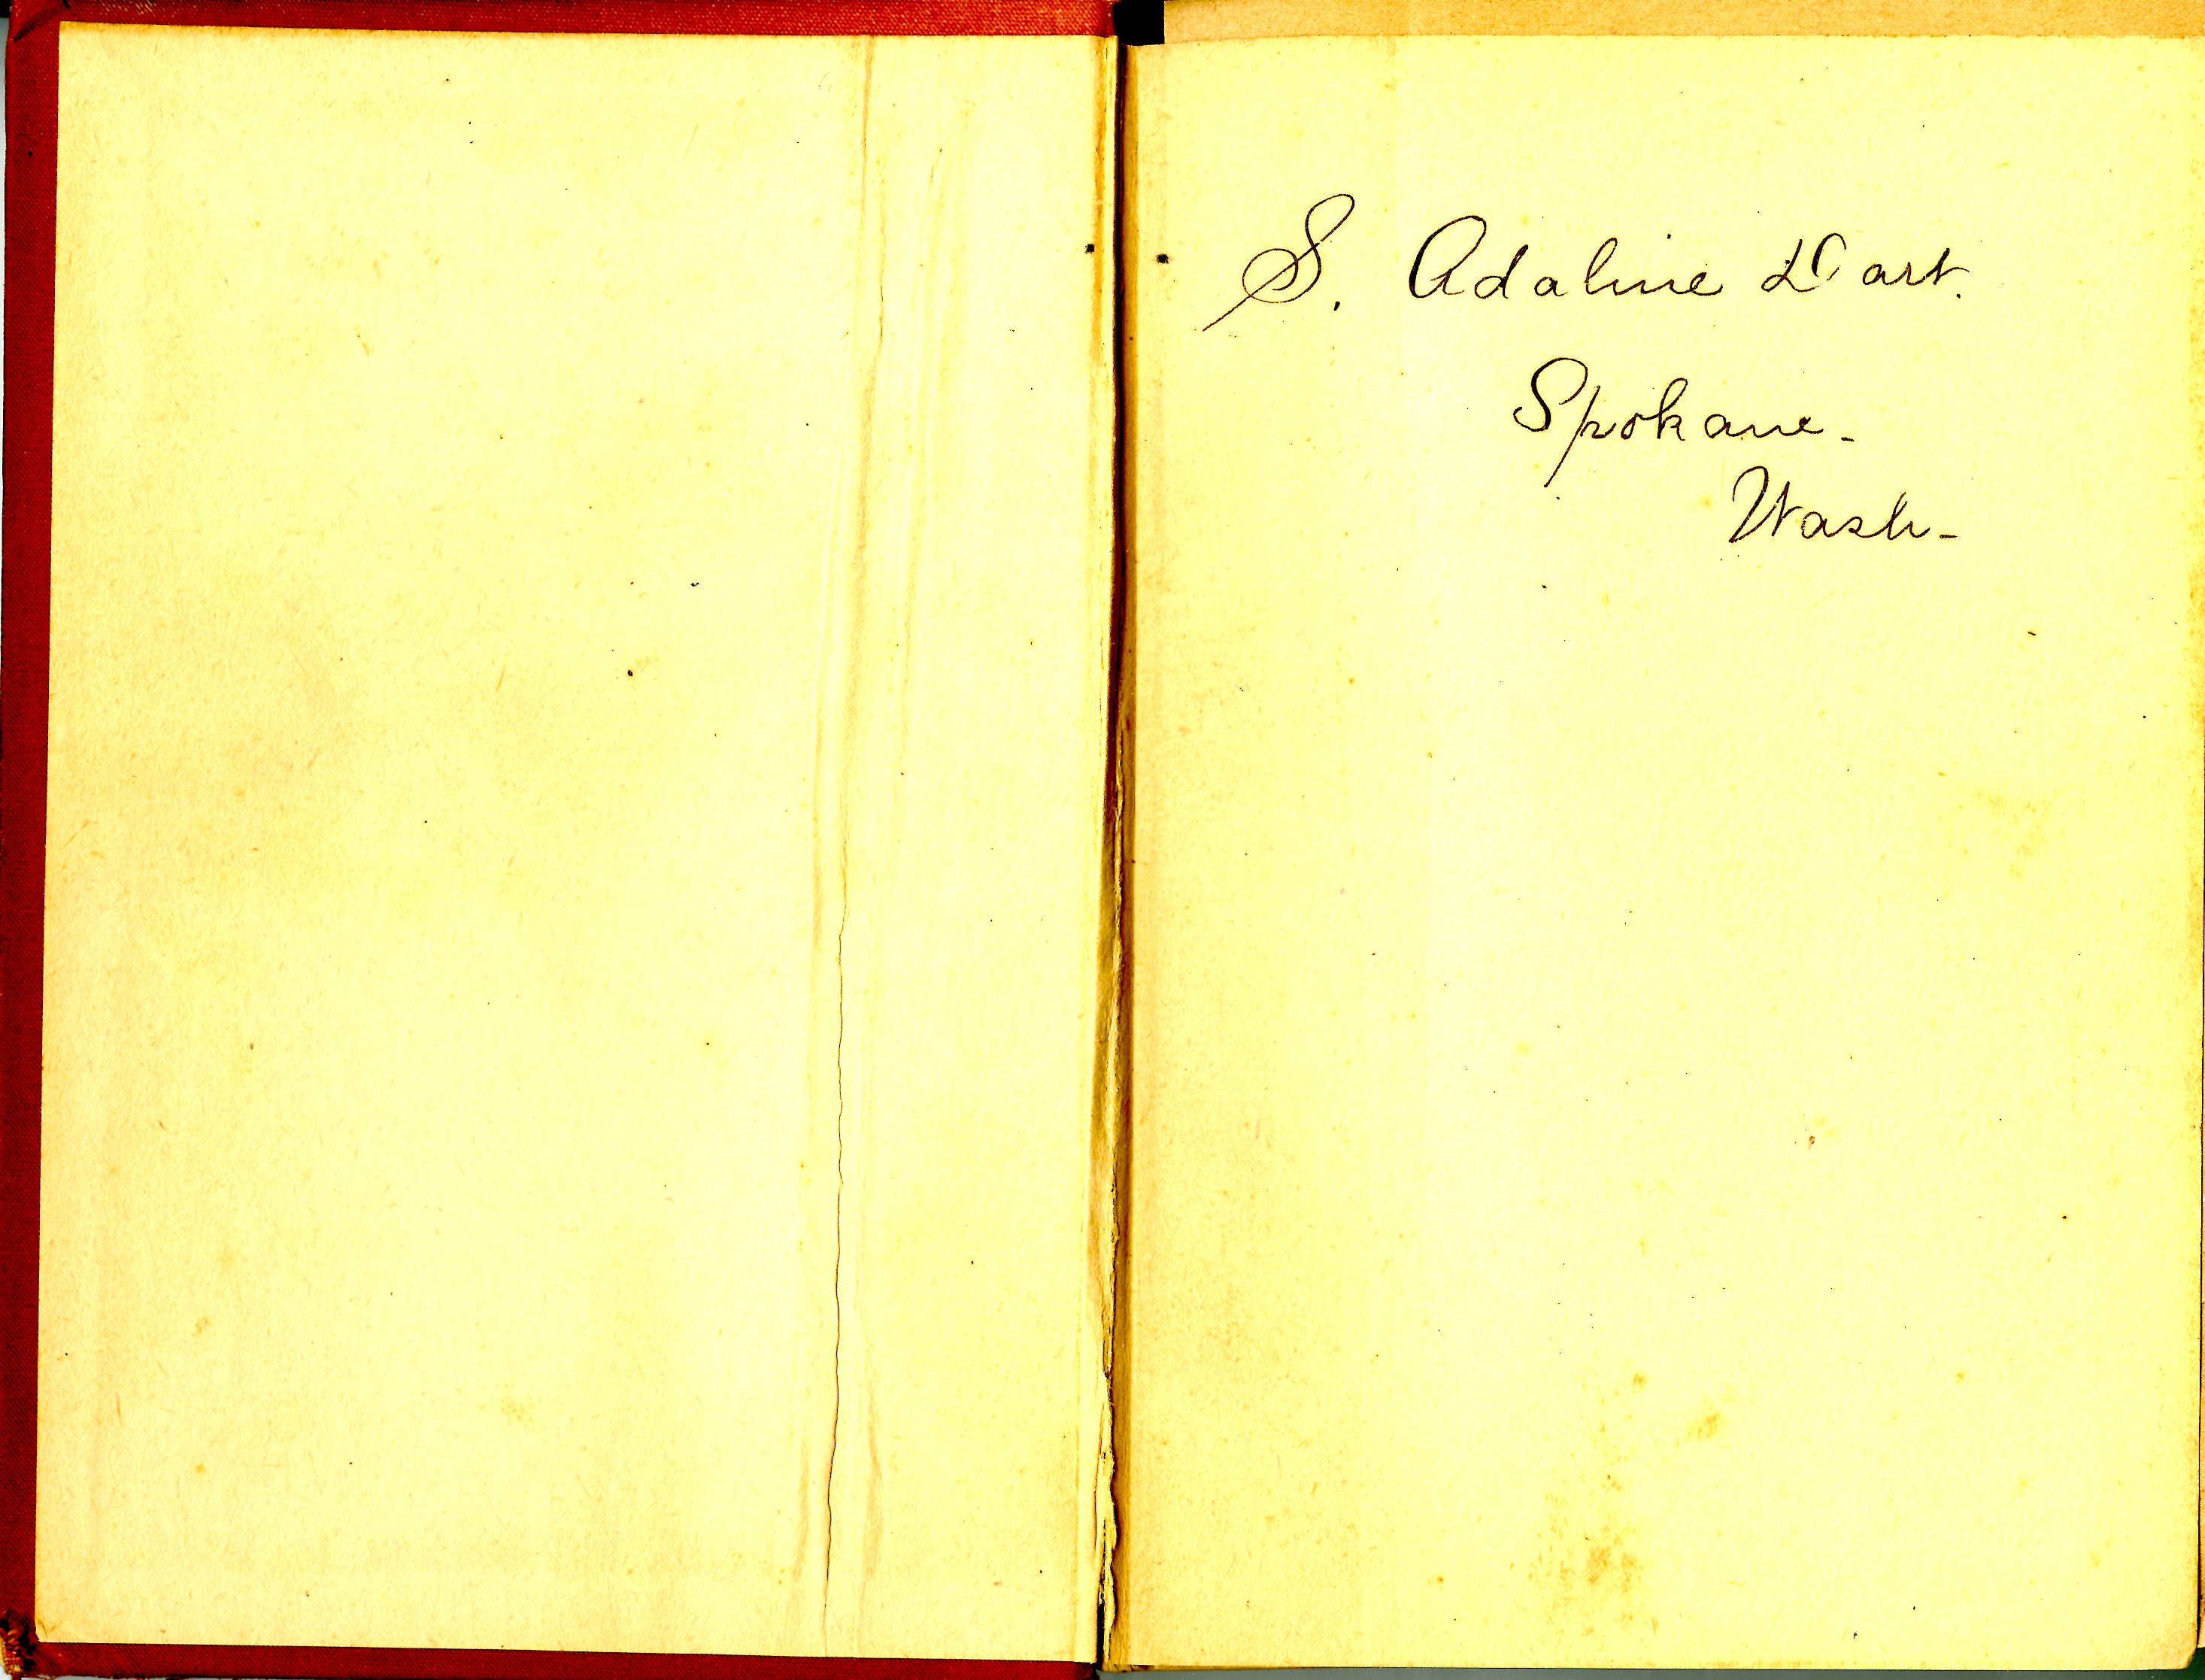 S. Adaline Dart.
Spokane-
Wash-